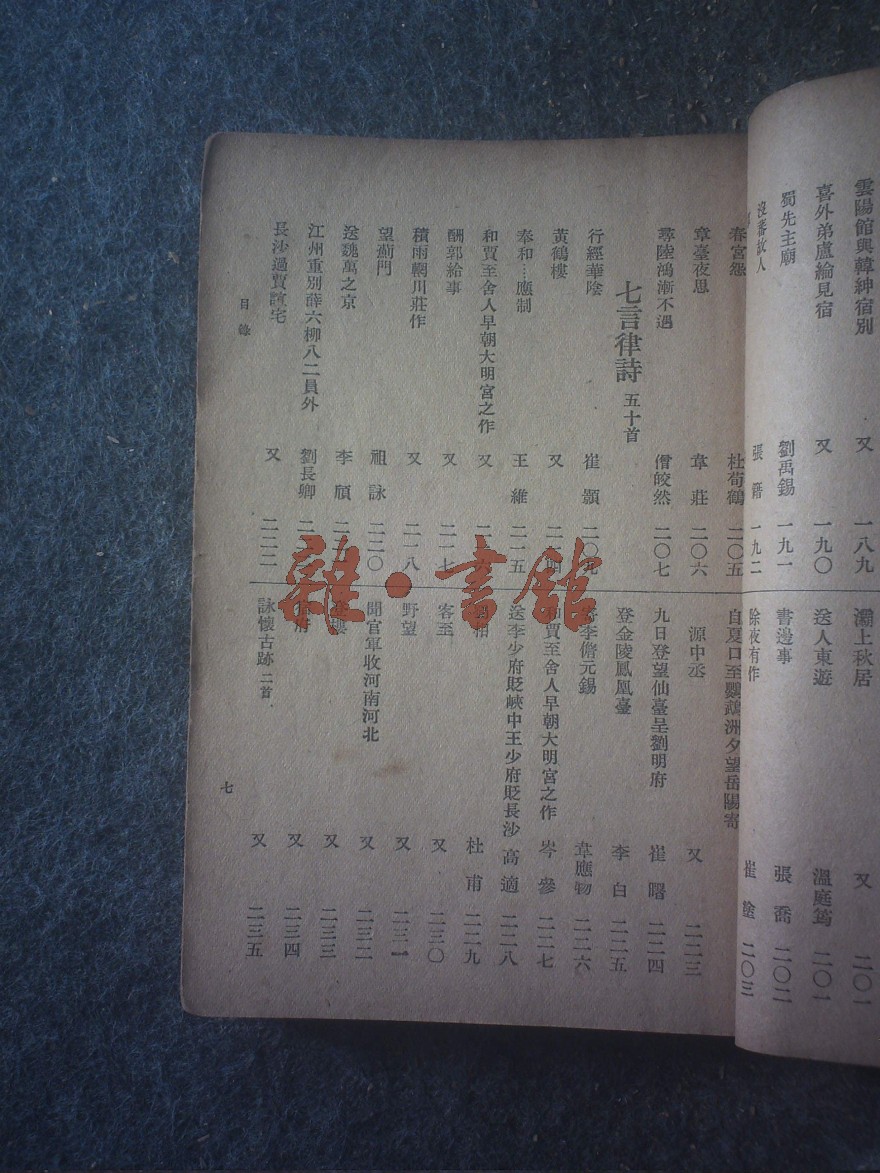 雲陽館與韓紳宿別 又 一八九
喜外弟盧綸見宿 又 一九〇
蜀先主廟 劉禹錫 一九一
沒蕃故人 張籍 一九二
灞上秋居 又 二〇一
送人東遊 溫庭筠 二〇一
書邊事 張喬 二〇二
除夜有作 崔塗 二〇三
春宮怨 杜荀鶴 二〇五
章臺夜思 韋莊 二〇六
尋陸鴻漸不遇 僧皎然 二〇七
七言律詩 五十首
行經華陰 崔顥 二〇九
黃鶴樓 又
奉和…應制 王維 二一五
和賈至舍人早朝大明宮之作 又
酬郭給事 又 二一七
積雨輞川莊作 又 二一八
望薊門 祖詠 二二〇
送魏萬之京 李頎
江州重別薛六柳八二員外 劉長卿
長沙過賈誼宅 又 二二二
自夏口至鸚鵡洲夕望岳陽寄
源中丞 又 二二三
九日登望仙臺呈劉明府 崔曙 二二四
登金陵鳳凰臺 李白 二二五
李儋元錫 韋應物 二二六
和賈至舍人早朝大明宮之作 岑參 二二七
送李少府貶峽中王少府貶長沙 高適 二二八
相 杜甫 二二九
客至 又 二三〇
野望 又 二三一
聞官軍收河南河北 又 二三二
樓 又 二三三
府 又 二三四
詠懷古跡 二首 又 二三五
目錄
七
雜·書館